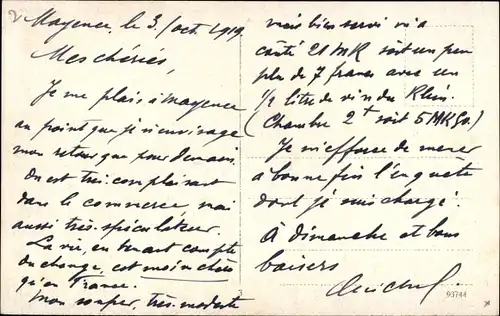 Mayence, le 3/oct 1919
Mes chéries,
Je me plais à Mayence
au point que je n'envisage
mon retour que pour demain.
On est très complaisant
dans le commerce, mais
aussi très spéculateur.
La vie, en tenant compte
du change, est moins chère
qu'en France.
Mon souper, très modeste
mais bien servi m'a
coûté 21 MK soit un peu
plus de 7 francs avec un
1/2 litre de vin du Rhin.
(Chambre 2 soit 5 MK 50)
Je m'efforce de mener
à bonne fin l'enquête
dont je suis chargé.
À dimanche et bons
baisers
Michel
3
93744